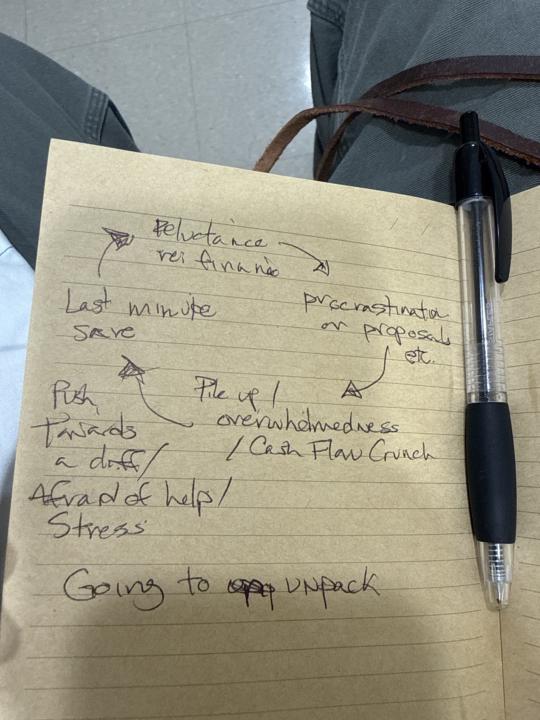 Reluctance
re: finance
procrastination
or proposals
etc.
Last minute
save
Pile up /
overwhelmedness
/ Cash Flow Crunch
Push
Towards
a
Afraid of help /
Stress
Going to unpack